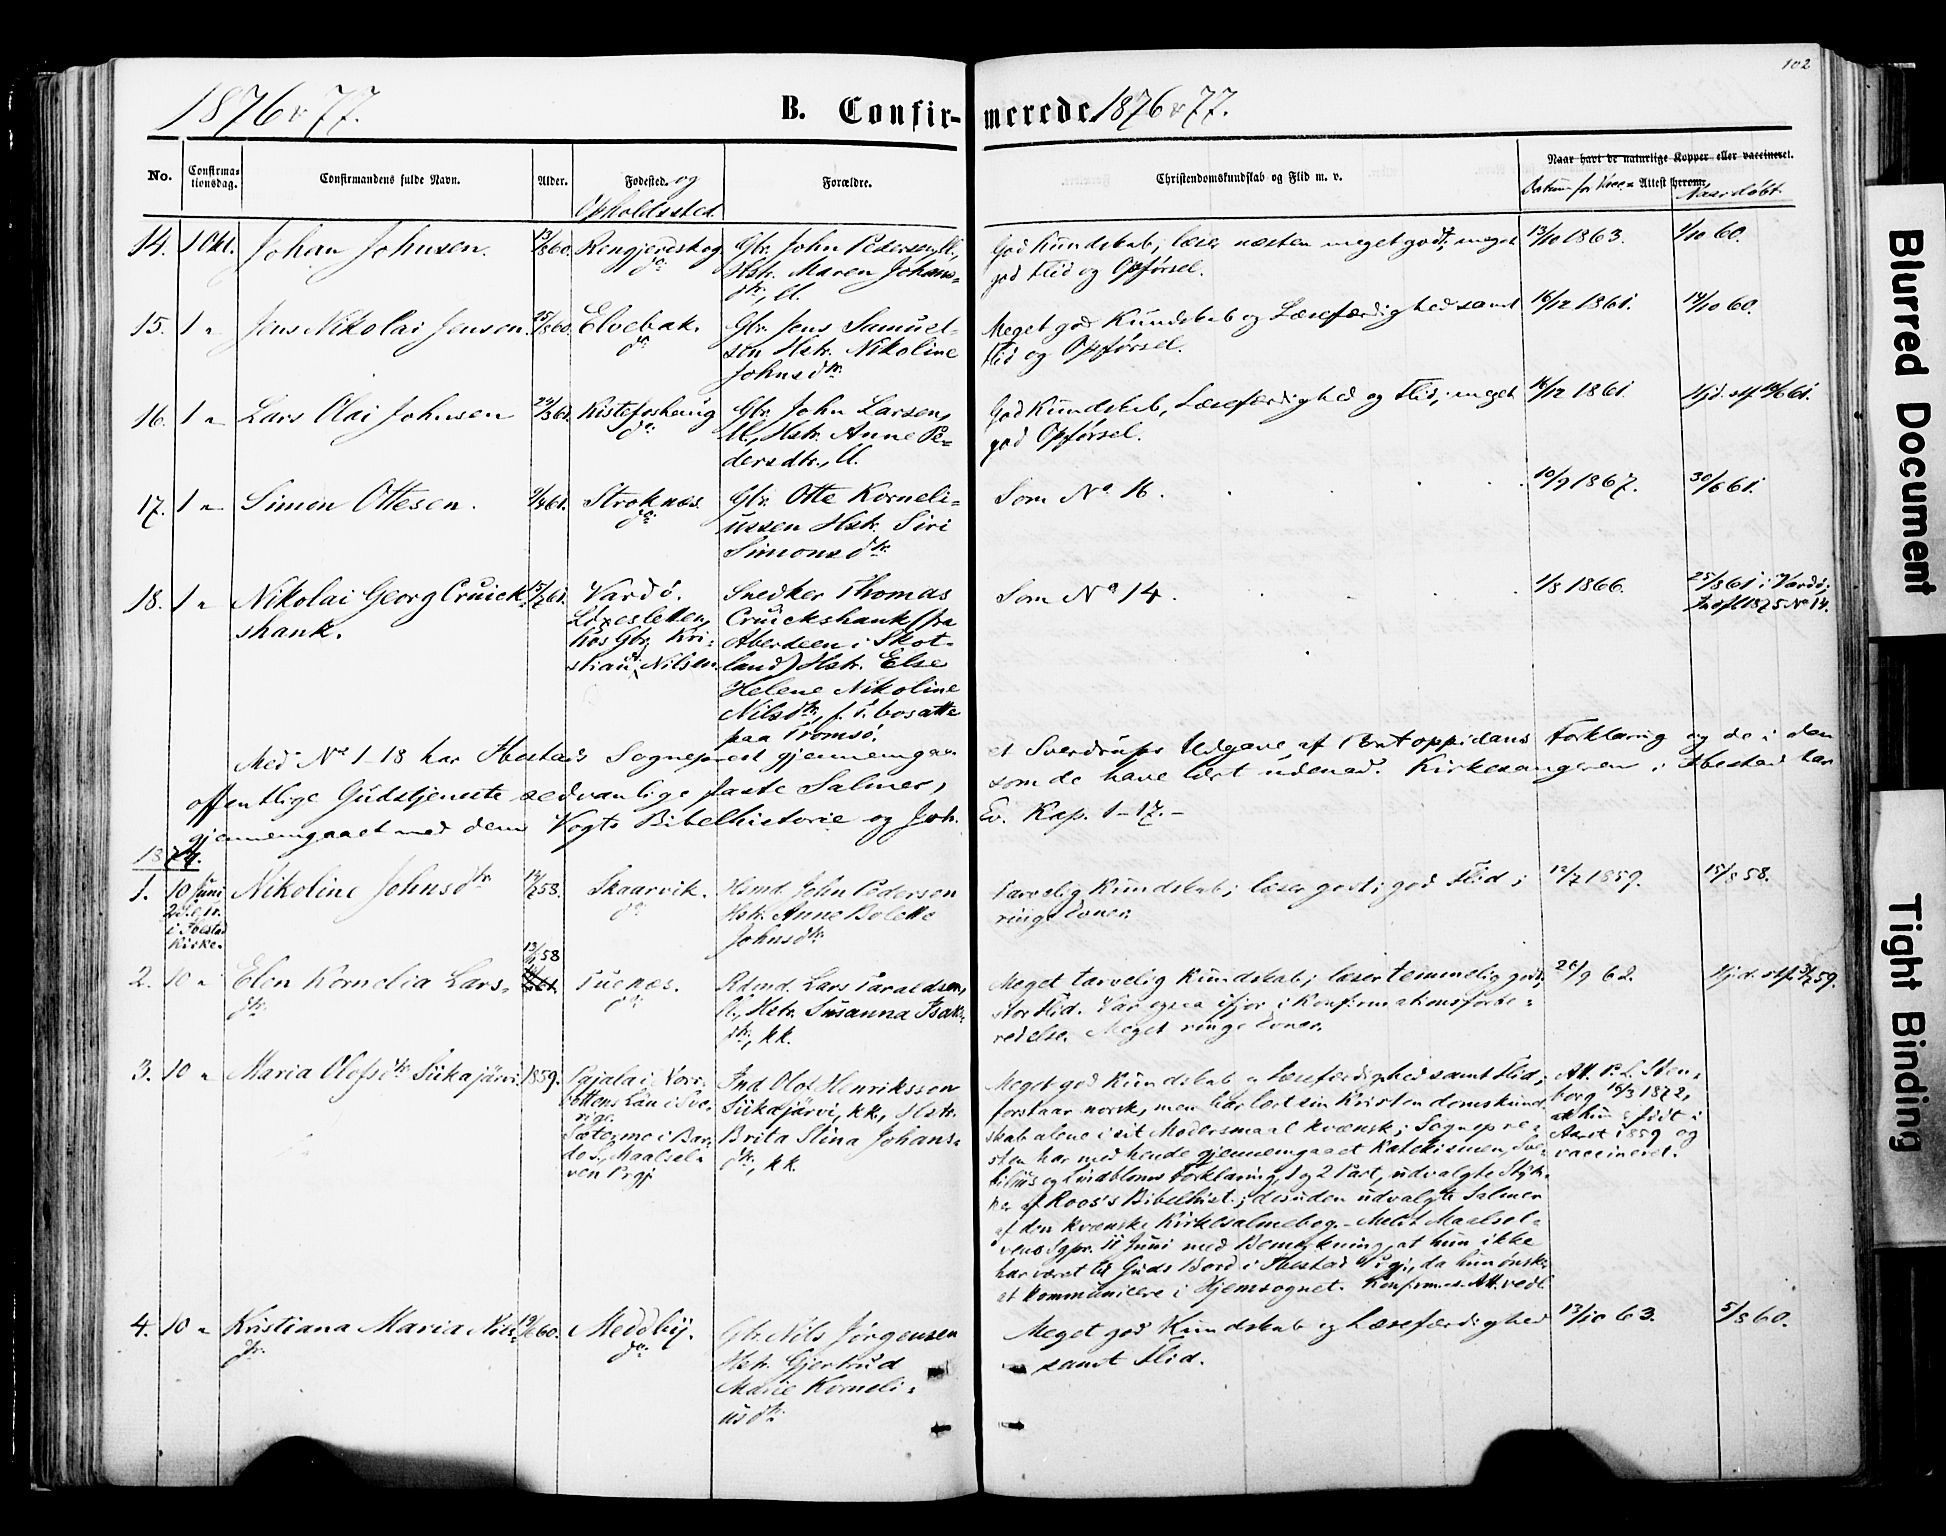 102
1876 & 77.
B. Confir-
merede 1876 & 77.
No.
Confirma-
tionsdag.
Confirmandens fulde Navn.
Alder.
Fødested. og
Opholdssted.
Forældre.
Christendomskundskab og Flid m. v.
Naar havt de naturlige Kopper eller vaccineret.
Datum for Vacc= Attest herom.
Naar døbt.
14. 1 Okt. Johan Johnsen. 60. Rengjerdskog
do.
Gbr. John Peterson, U.,
Hstr. Maren Johans-
dtr., U.
God Kundskab; læser næsten meget godt; meget
god Flid og Opførsel.
13/10 1863.
/10 60.
15. 1 " Jens Nikolai Jensen. 60. Elvebak.
do.
Gbr. Jens Samuel-
sen Hstr. Nikoline
Johnsdtr.
Meget god Kundskab og Læsefærdighed samt
Flid og Opførsel.
16/12 1861.
14/10 60.
16. 1 " Lars Olai Johnsen 61. Kistefoshaug
do.
Gbr. John Larsen,
U., Hstr. Anne Pe-
dersdtr., U.
God Kundskab, Læsefærdighed og Flid; meget
god Opførsel.
16/12 1861.
Hjd. stf. 61.
17. 1 " Simon Ottesen. 61. Stroknæs.
do.
Gbr. Otte Korneli-
ussen Hstr. Siri
Simonsdtr.
Som No 16.
10/9 1867.
30/6 61.
18. 1 " Nikolai Georg Cruick-
shank.
61. Vardø.
Løxesletten,
hos Gbr. Kri-
stian Nilsen
Snedker Thomas
Cruickshank (fra
Aberdeen i Skot-
land) Hstr. Else
Helene Nikoline
Nilsdtr., f. T. bosatte
paa Tromsø.
Som No 14.
1/8 1866.
25/8 61 i Vardø;
1875 No 14.
Med No 1-18 har Ibestads Sogneprest gjennemgaa-
et Sverdrups Udgave af Pontoppidans Forklaring og de i den
offentlige Gudstjeneste sedvanlige faste Salmer,
som de have lært udenad. Kirkesangeren i Ibestad har
gjennemgaaet med dem Vogts Bibelhistorie og Joh.
Ev. Kap. 1-17.-
1877.
1. 10 Juni
2 S. e. Tr.
i Ibestad
Kirke.
Nikoline Johnsdtr. 58. Skaarvik.
do.
Hsmd. John Pederson
Hstr. Anne Bolette
Johnsdtr.
Tarvelig Kundskab; læser godt; god Flid;
ringe Evner.
12/7 1859.
15/8 58.
2. 10 " Elen Kornelia Lars-
dtr.
58
do.
Rdmd. Lars Taraldsen,
U., Hstr. Susanna Isaks-
dtr., kk.
Meget tarvelig Kundskab; læser temmelig godt;
stor Flid. Var ogsaa ifjor i Konfirmationsforbe-
redelse. Meget ringe Evner.
26/9 62.
Hjd. stf. 59.
3. 10 " Maria Olofsdtr. Siikajärvi. 1859. Pajala i Norr-
bottens Län i Sve-
rige.
Sætermo i Bar-
do S., Maalsel-
ven Prgj.
Ind. Olof Henriksson
Siikajärvi, kk., Hstr.
Brita Stina Johans-
dtr., kk.
Meget god Kundskab og Læsefærdighed samt Flid;
forstaar norsk, men har lært sin Kristendomskund-
skab alene i sit Modersmaal kvænsk; Sognepre-
sten har med hende gjennemgaaet Katekismen, Sve-
bilius og Lindbloms Forklaring, 1 og 2 Part, udvalgte Styk-
ker af Roos's Bibelhist.; desuden udvalgte Salmer
af den kvænske Kirkesalmebog. - Meldt Maalsel-
vens Sgpr. 11 Juni med Bemerkning, at hun ikke
har været til Guds Bord i Ibestad Prgj., da hun ønsker
at kommunicere i Hjemsognet. Konfirmas. Att. vedl.
Att. P. L. Sten-
borg 16/3 1872,
at hun er født i
Aaret 1859 og
vaccineret.
4. 10 " Kristiana Maria Nils-
dtr.
60. Meddby.
do.
Gbr. Nils Jørgensen
Hstr. Gjertrud
Marie Korneli-
usdtr.
Meget god Kundskab og Læsefærdighed
samt Flid.
13/10 63.
5/8 60.
Blurred Document
Tight Binding